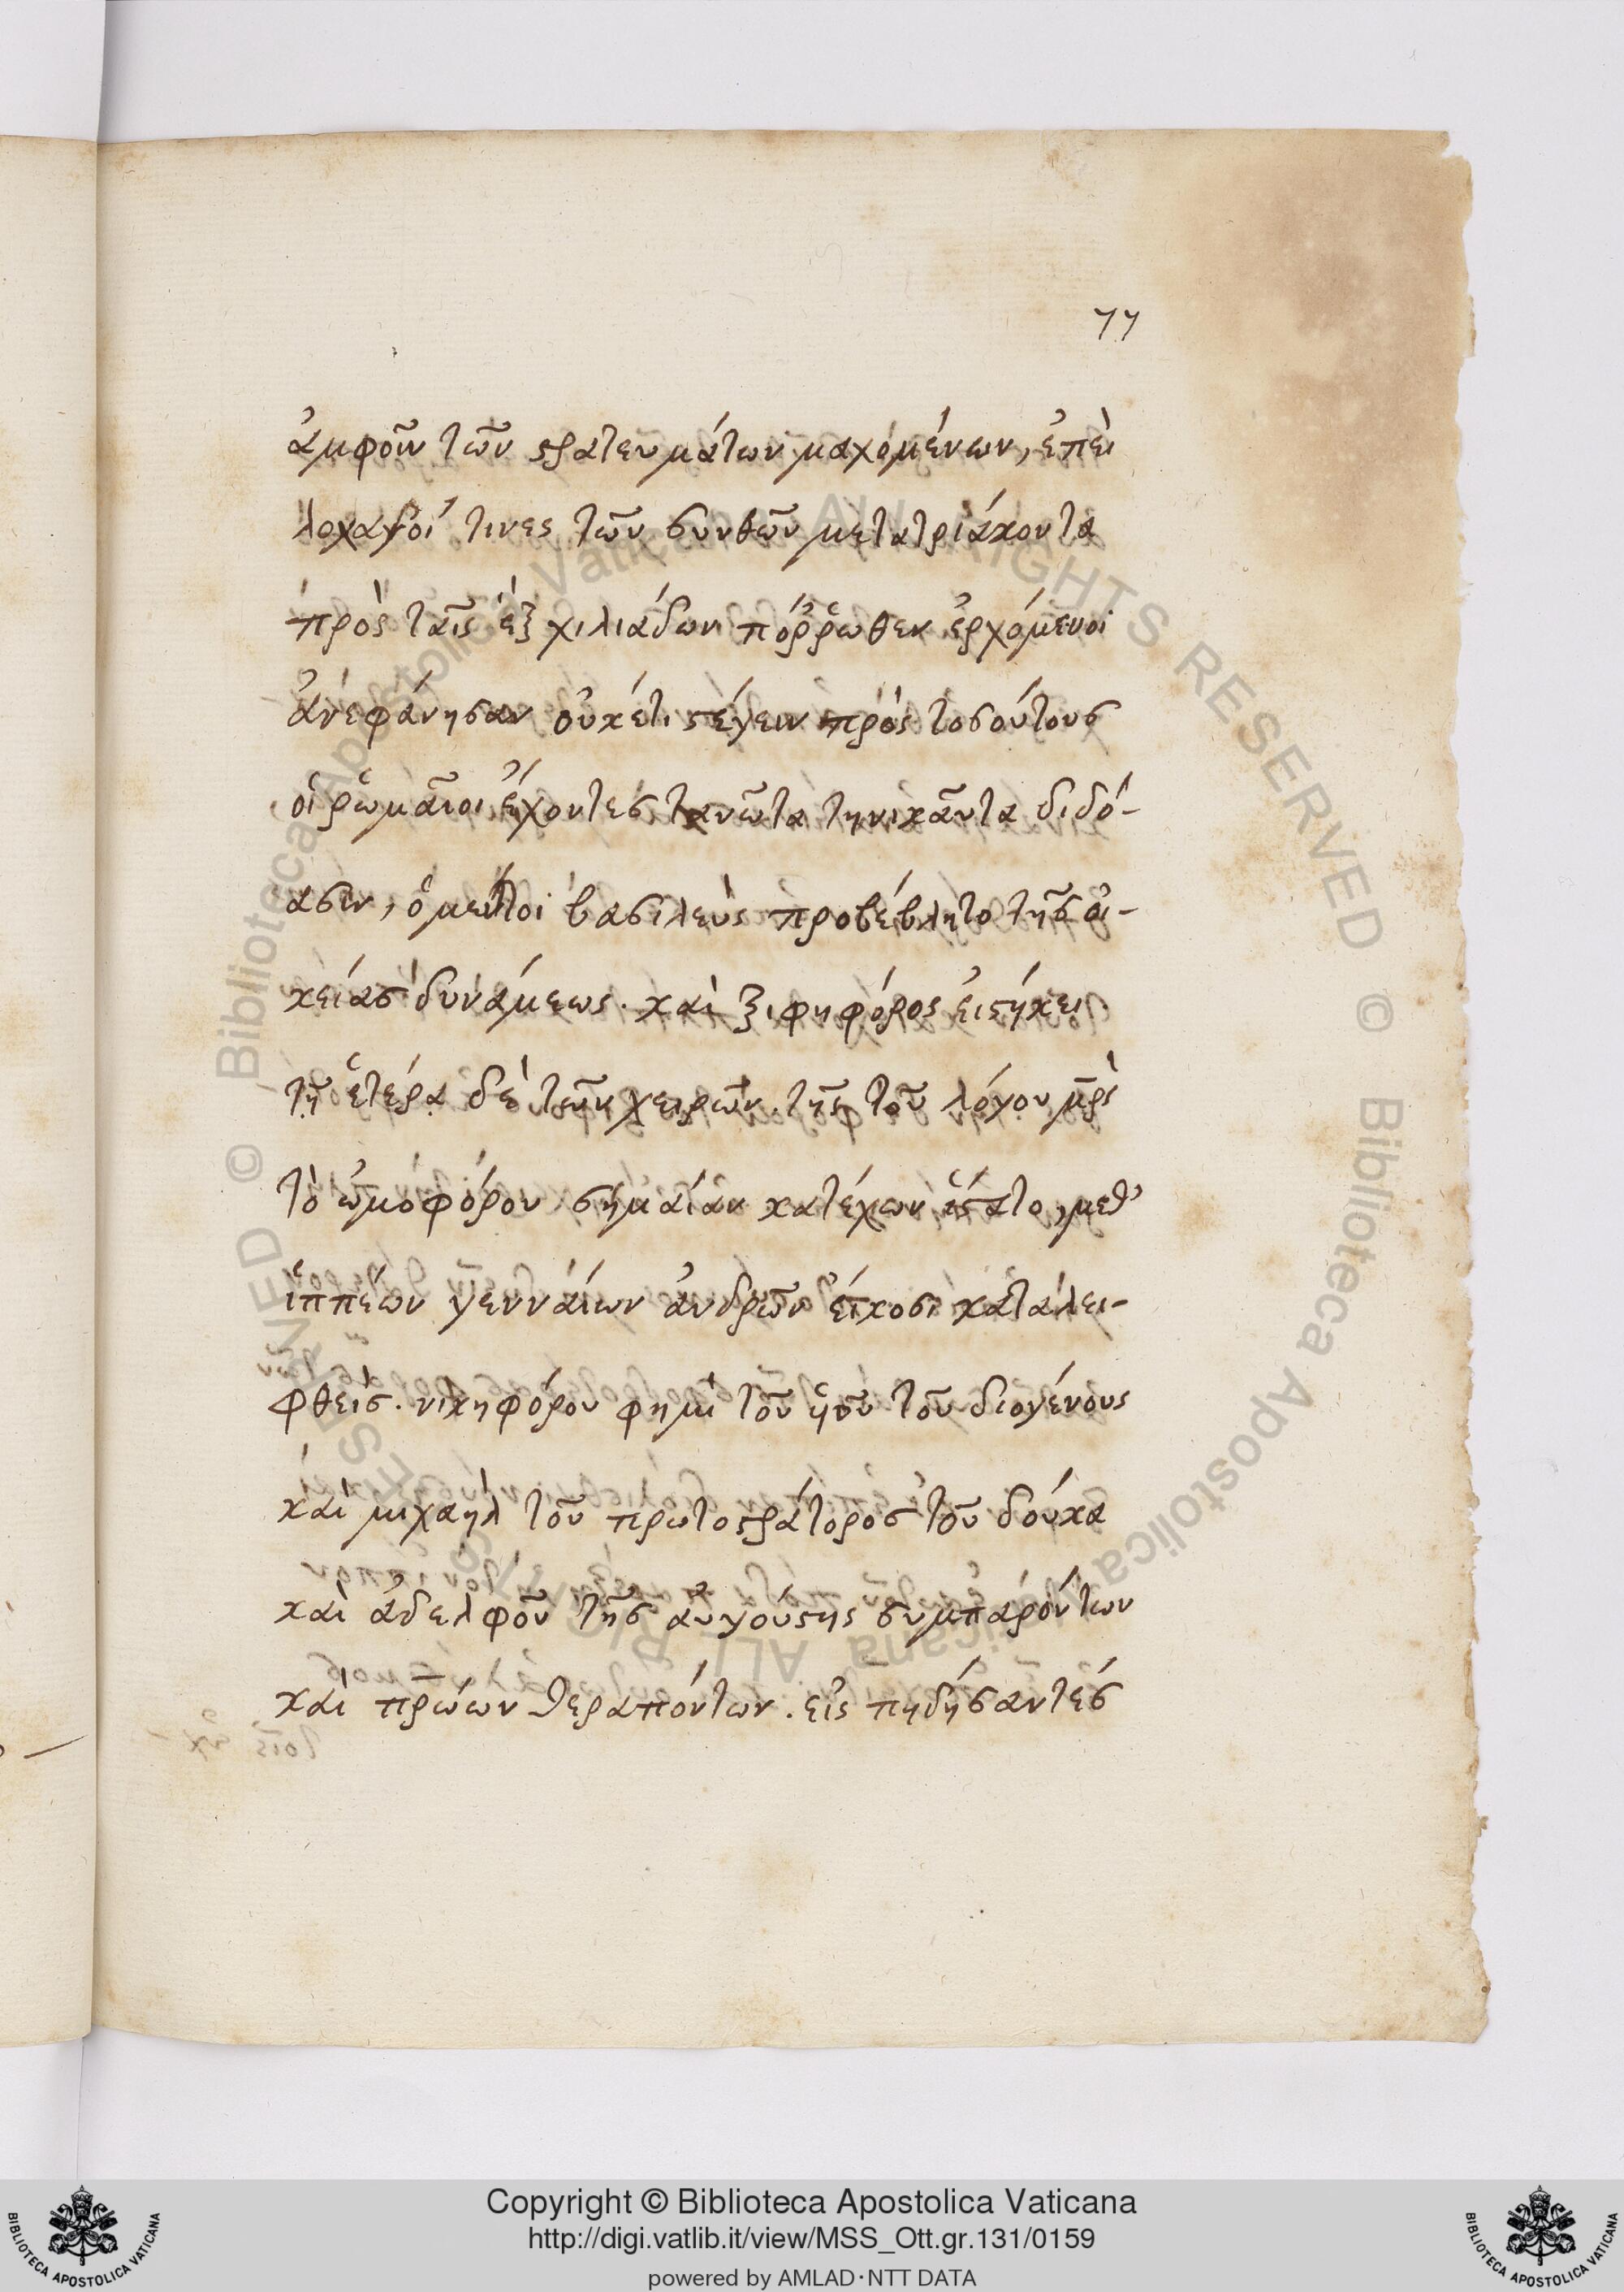 77
ἀμφοῖν τῶν στρατευμάτων μαχομένων, ἐπεὶ
λοχαγοί τινες τῶν συνθῶν μετα τριάκοντα
πρὸς ταῖς ἑξ χιλιάδων πόῤῥωθεν ἐρχόμενοι
ἀνεφάνησαν οὐκέτι στέγειν πρὸς τοσούτους
οἱ ῥωμαῖοι ἔχοντες τα νῶτα τηνικαῦτα διδό-
ασιν, ὁ μέντοι βασιλεὺς προβέβλητο τῆς οἰ-
κείας δυνάμεως. καὶ ξιφηφόρος εἰστήκει
τῇ ἑτέρᾳ δὲ τῶν χειρῶν. τῆς τοῦ λόγου μρ̅ς
τὸ ὠμοφόρον σημαίαν κατέχων ἵστατο, μεθ'
ἱππέων γενναίων ἀνδρῶν εἴκοσι καταλει-
φθείς. νικηφόρου φημὶ τοῦ ὑοῦ τοῦ διογένους
καὶ μιχαηλ τοῦ πρωτοστράτορος τοῦ δούκα
καὶ ἀδελφοῦ τῆς αὐγούστης συμπαρόντων
καὶ πρ̅ώων θεραπόντων. εἰς πηδήσαντές
Copyright © Biblioteca Apostolica Vaticana
http://digi.vatlib.it/view/MSS_Ott.gr.131/0159
powered by AMLAD·NTT DATA
BIBLIOTECA APOSTOLICA VATICANA
BIBLIOTECA APOSTOLICA VATICANA